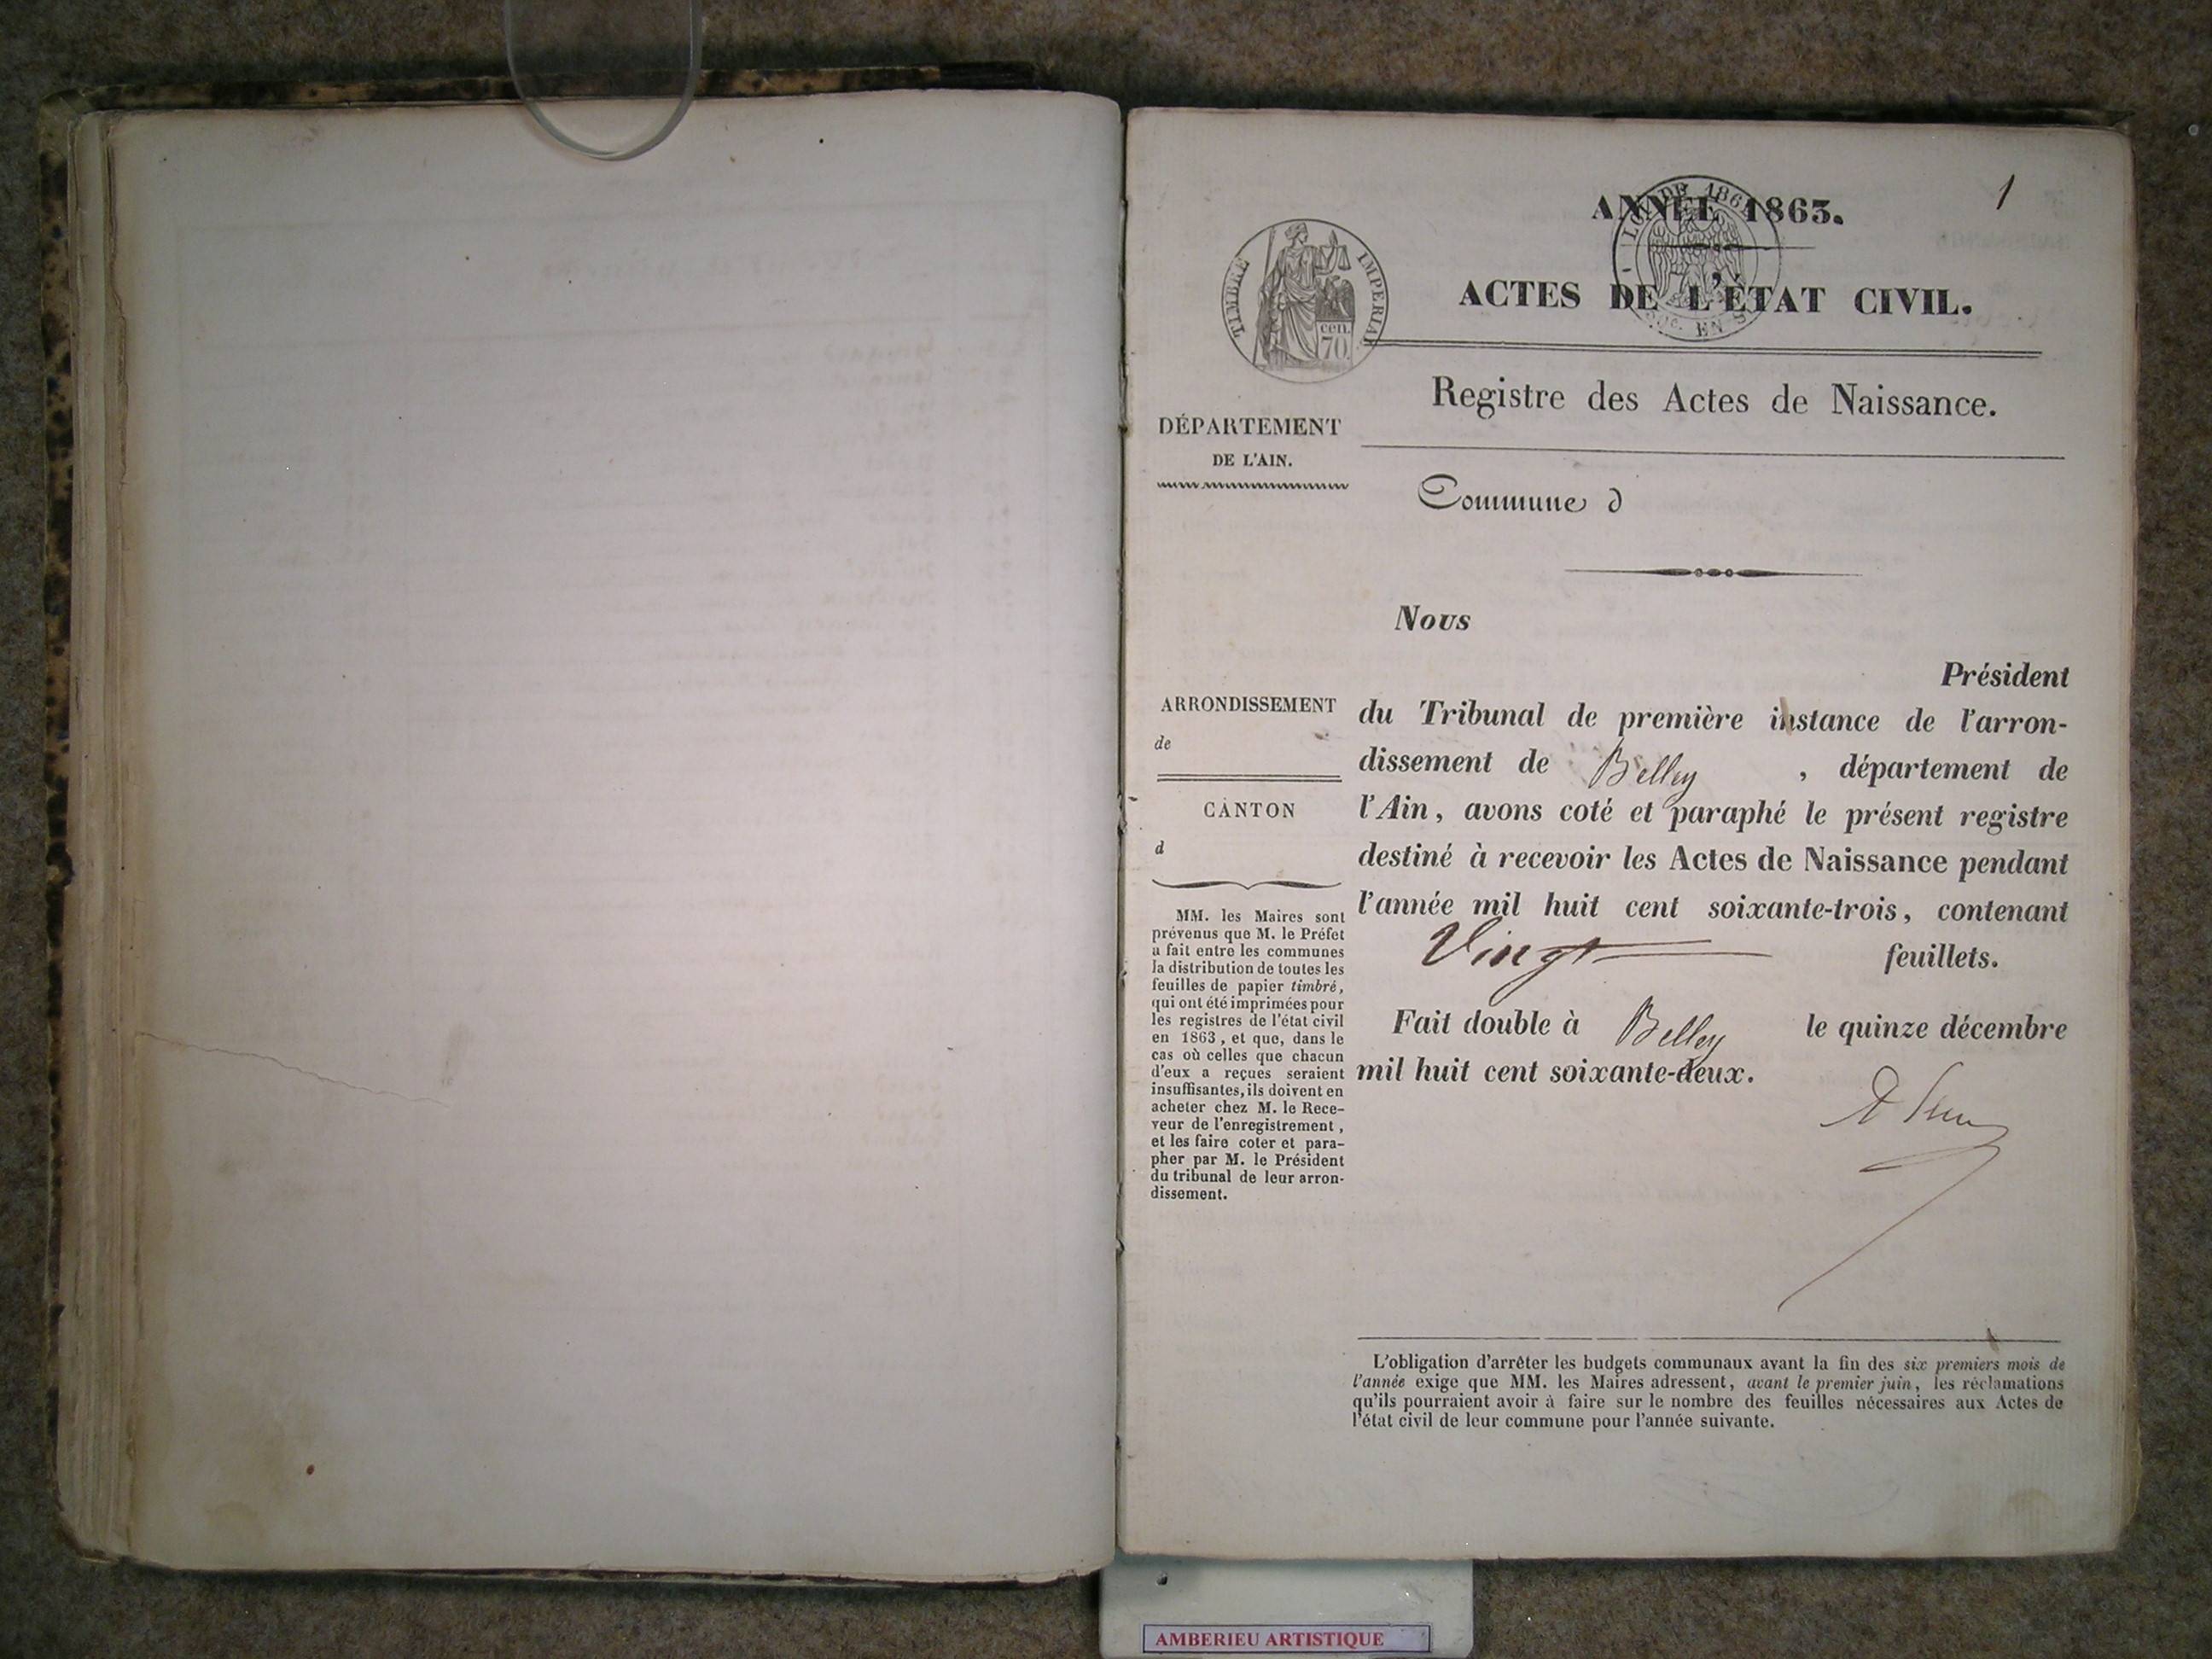 1
ANNÉE 1863.
LOI DE 186
EN S
TIMBRE IMPERIAL
cen.
70
ACTES DE L'ÉTAT CIVIL.
Registre des Actes de Naissance.
DÉPARTEMENT
DE L'AIN.
Commune d
Nous
Président
du Tribunal de première instance de l'arron-
dissement de Belley , département de
l'Ain, avons coté et paraphé le présent registre
destiné à recevoir les Actes de Naissance pendant
l'année mil huit cent soixante-trois, contenant
Vingt feuillets.
Fait double à Belley le quinze décembre
mil huit cent soixante-deux.
ARRONDISSEMENT
de
CANTON
d
MM. les Maires sont
prévenus que M. le Préfet
a fait entre les communes
la distribution de toutes les
feuilles de papier timbré,
qui ont été imprimées pour
les registres de l'état civil
en 1863, et que, dans le
cas où celles que chacun
d'eux a reçues seraient
insuffisantes, ils doivent en
acheter chez M. le Rece-
veur de l'enregistrement,
et les faire coter et para-
pher par M. le Président
du tribunal de leur arron-
dissement.
L'obligation d'arrêter les budgets communaux avant la fin des six premiers mois de
l'année exige que MM. les Maires adressent, avant le premier juin, les réclamations
qu'ils pourraient avoir à faire sur le nombre des feuilles nécessaires aux Actes de
l'état civil de leur commune pour l'année suivante.
AMBERIEU ARTISTIQUE